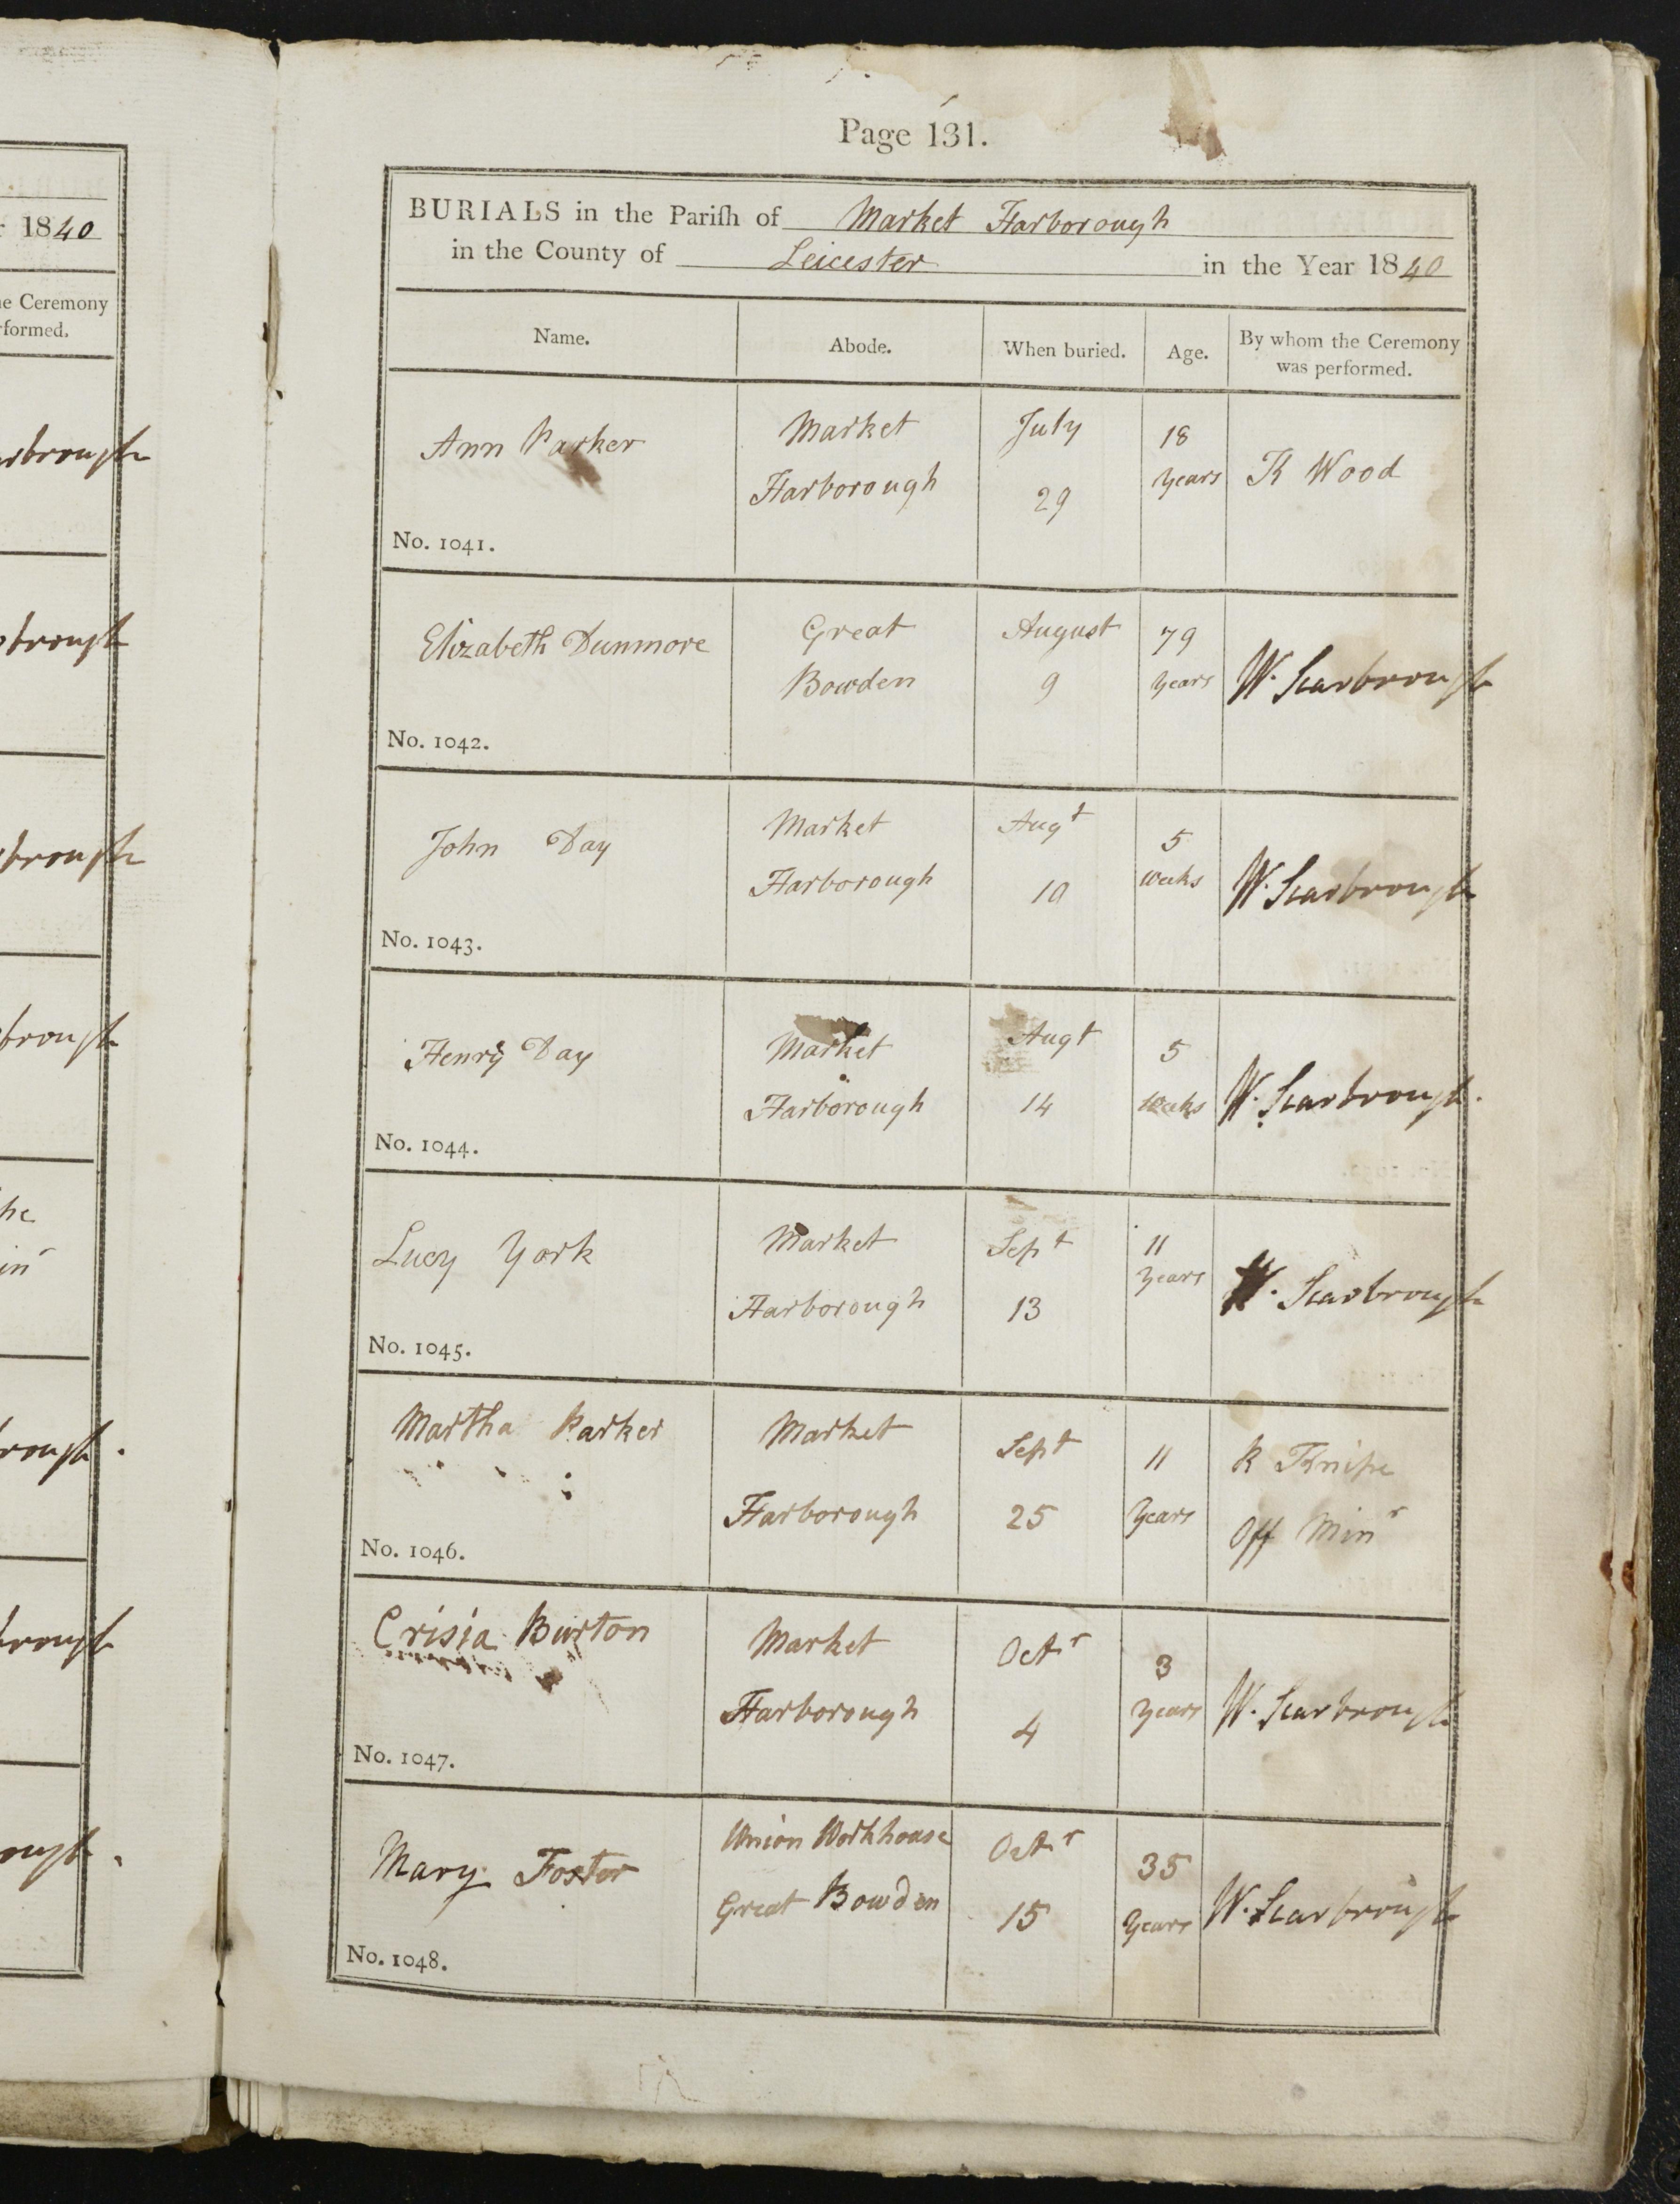 Page 131.
BURIALS in the Pariſh of Market Harborough
in the County of Leicester in the Year 1840
Name. Abode. When buried. Age. By whom the Ceremony was performed.
Ann Parker
Market
Harborough
July
29
18
Years
K Wood
No. 1041.
Elizabeth Dunmore
Great
Bowden
August
9
79
Years
W. Scarbrough
No. 1042.
John Day
Market
Harborough
Augt
10
5
weeks
W. Scarbrough
No. 1043.
Henry Day
Market
Harborough
Augt
14
5
weeks
W. Scarbrough.
No. 1044.
Lucy York
Market
Harborough
Sept
13
11
Years
W. Scarbrough
No. 1045.
Martha Parker
Market
Harborough
Sept
25
11
Years
R Knipe
Off Minr
No. 1046.
Crisia Burton
Market
Harborough
Octr
4
3
Years
W. Scarbrough
No. 1047.
Mary Foster
Union Workhouse
Great Bowden
Octr
15
35
Years
W. Scarbrough
No. 1048.
1840
Ceremony